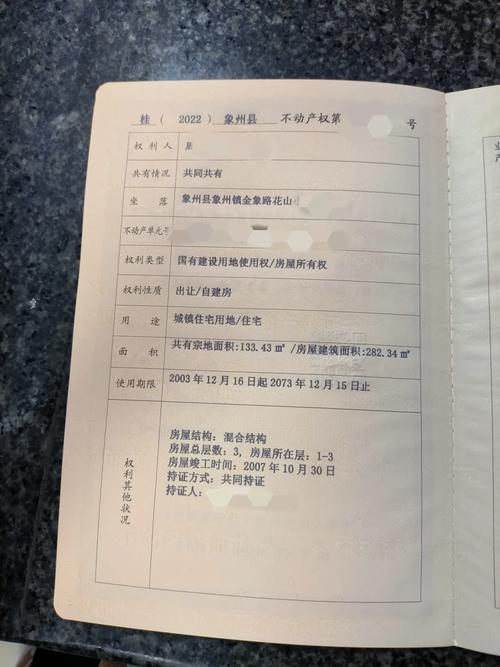 桂 ( 2022 ) 象州县 不动产权第 号
权利人
共有情况 共同共有
坐落 象州县象州镇金象路花山
不动产单元号
权利类型 国有建设用地使用权/房屋所有权
权利性质 出让/自建房
用途 城镇住宅用地/住宅
面积 共有宗地面积:133.43㎡/房屋建筑面积:282.34㎡
使用期限 2003年12月16日起2073年12月15日止
权利其他状况
房屋结构: 混合结构
房屋总层数: 3, 房屋所在层: 1-3
房屋竣工时间: 2007年10月30日
持证方式: 共同持证
持证人:
业